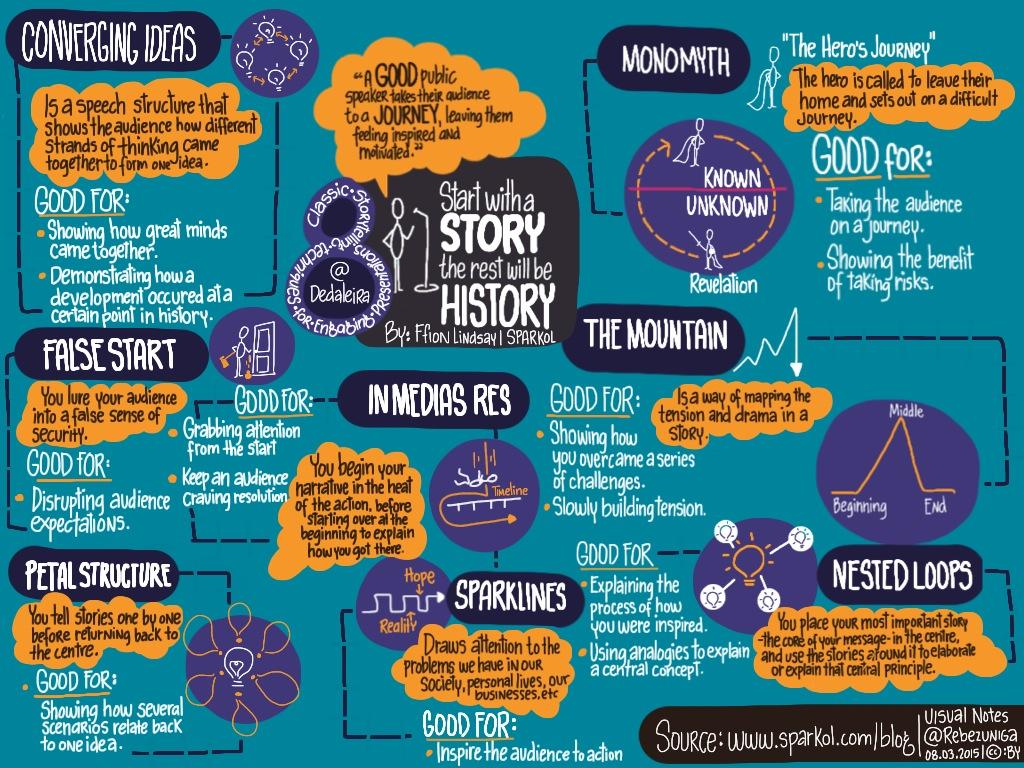 CONVERGING IDEAS
Is a speech structure that
shows the audience how different
strands of thinking came
together to form one idea.
GOOD FOR:
• Showing how great minds
came together.
• Demonstrating how a
development occured at a
certain point in history.
"A GOOD public
speaker takes their audience
to a JOURNEY, leaving them
feeling inspired and
motivated."
8
Classic Storytelling techniques for Engaging Presentations
@
Dedaleira
Start with a
STORY
the rest will be
HISTORY
By: Ffion Lindsay | SPARKOL
MONOMYTH
"The Hero's Journey"
The hero is called to leave their
home and sets out on a difficult
journey.
KNOWN
UNKNOWN
Revelation
GOOD for:
• Taking the audience
on a journey.
• Showing the benefit
of taking risks.
FALSE START
You lure your audience
into a false sense of
security.
GOOD FOR:
• Disrupting audience
expectations.
IN MEDIAS RES
GOOD FOR:
• Grabbing attention
from the start
• Keep an audience
craving resolution
You begin your
narrative in the heat
of the action, before
starting over at the
beginning to explain
how you got there.
Timeline
THE MOUNTAIN
Is a way of mapping the
tension and drama in a
story.
GOOD FOR:
• Showing how
you overcame a series
of challenges.
• Slowly building tension.
Middle
Beginning
End
PETAL STRUCTURE
You tell stories one by one
before returning back to
the centre.
• GOOD FOR:
Showing how several
scenarios relate back
to one idea.
SPARKLINES
Hope
Reality
Draws attention to the
problems we have in our
society, personal lives, our
businesses, etc
GOOD FOR:
• Inspire the audience to action
NESTED LOOPS
You place your most important story
-the core of your message- in the centre,
and use the stories around it to elaborate
or explain that central principle.
GOOD FOR
• Explaining the
process of how
you were inspired.
• Using analogies to explain
a central concept.
Source: www.sparkol.com/blog
Visual Notes
@Rebezuniga
08.03.2015 | ©: BY